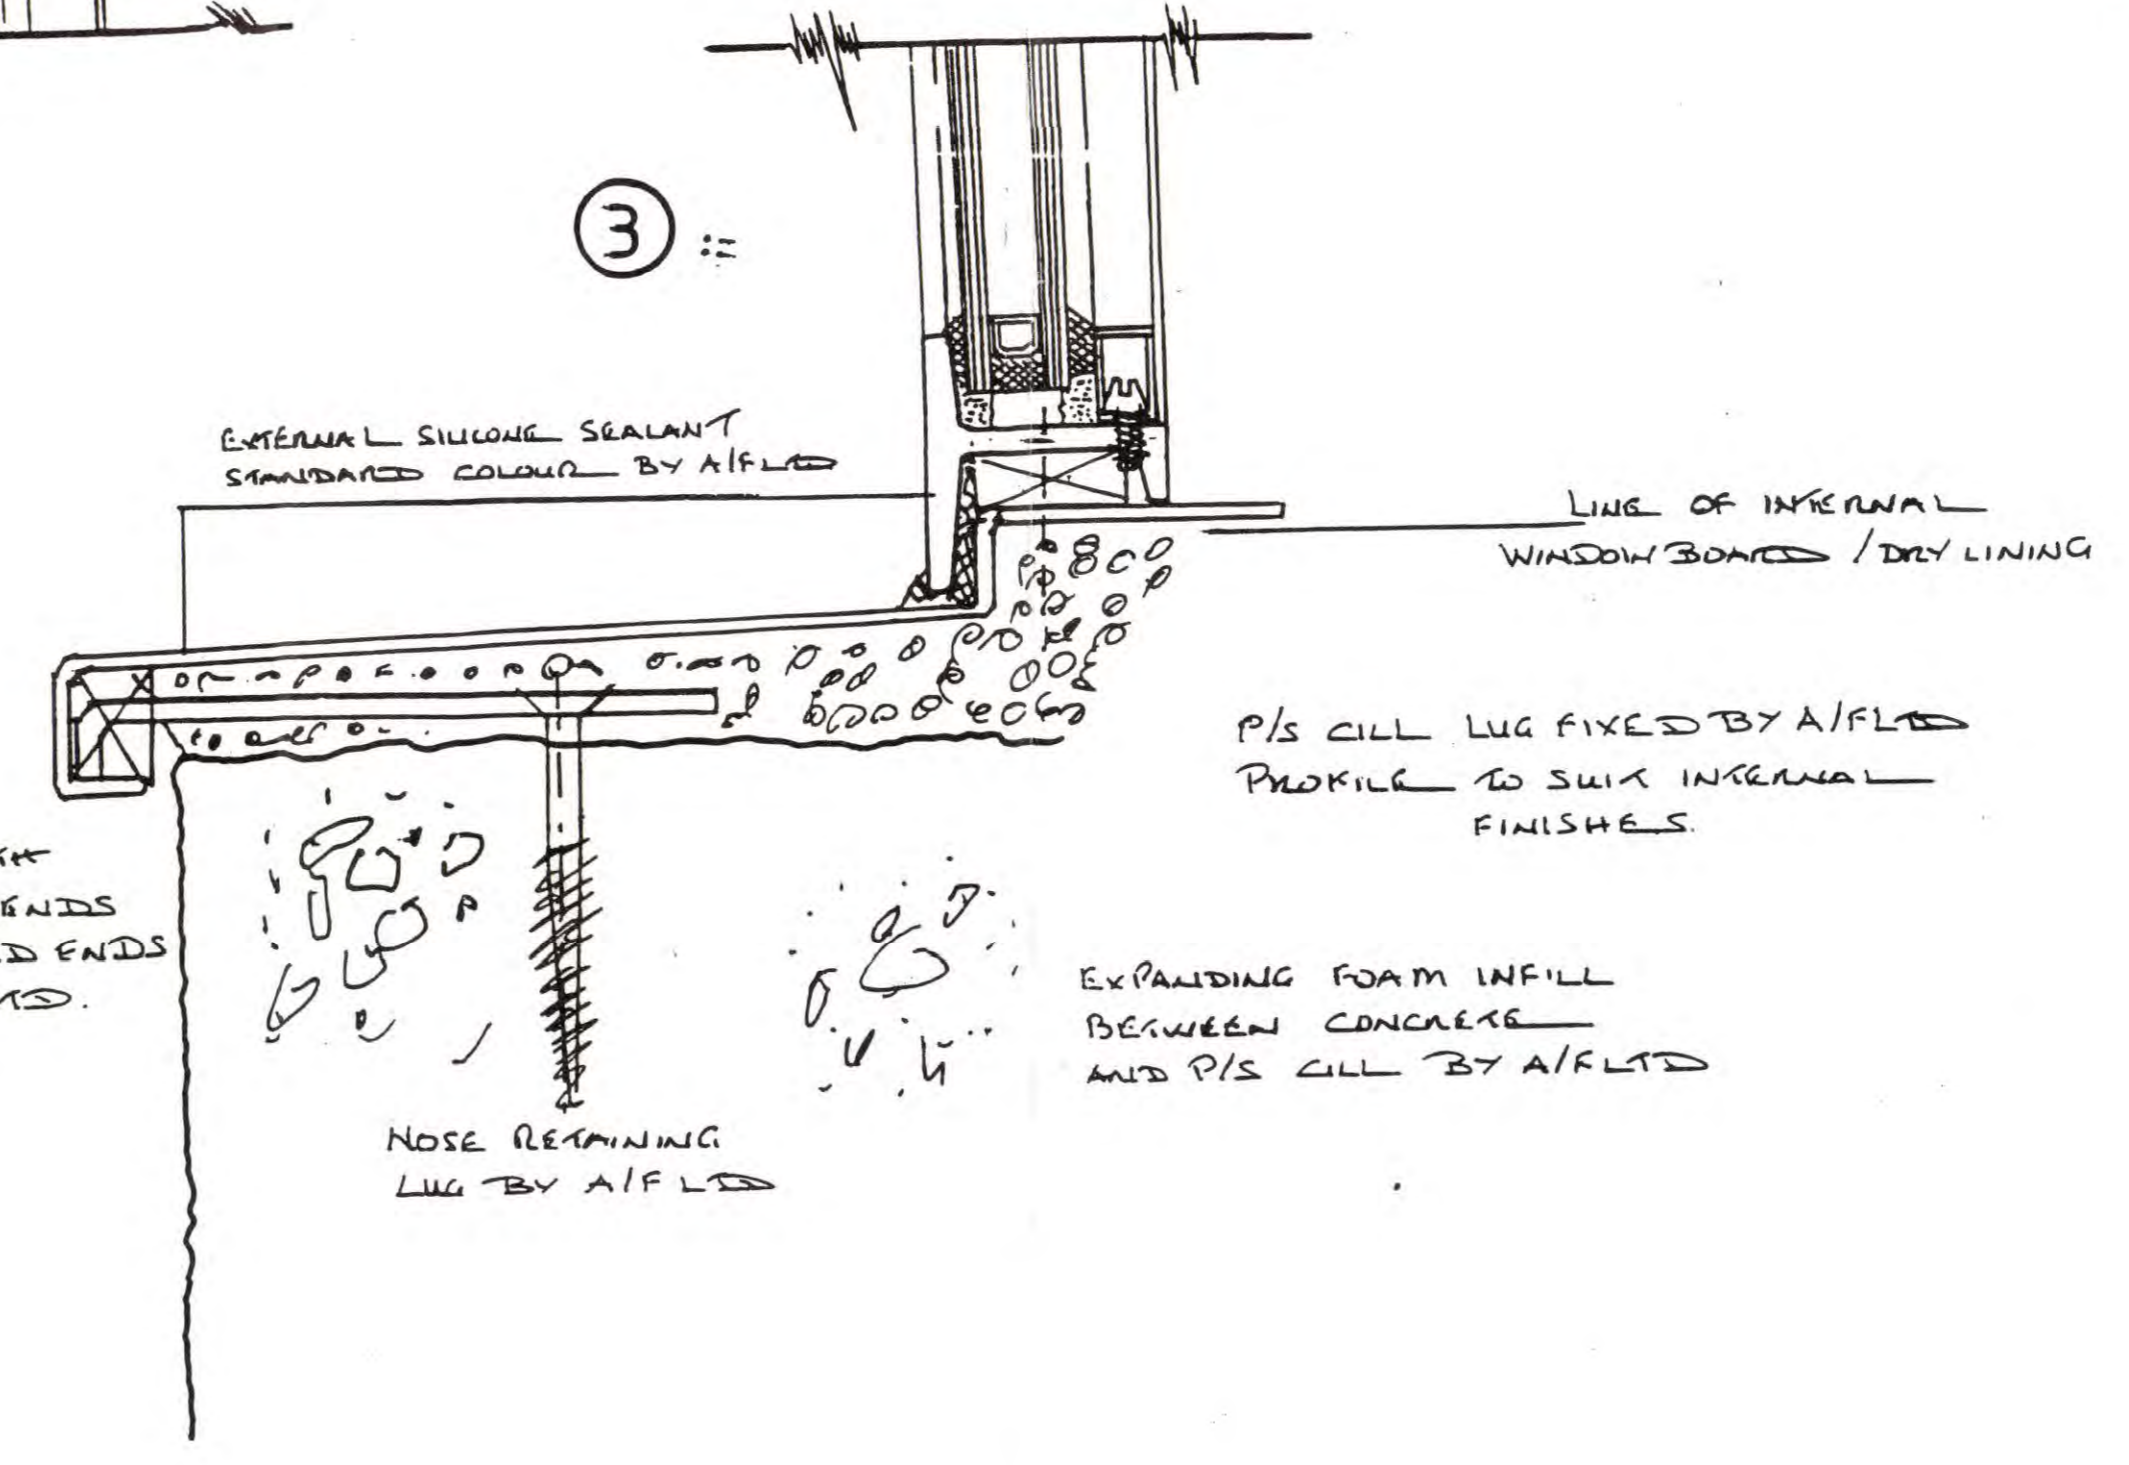 3 :=
EXTERNAL SILICONE SEALANT
STANDARD COLOUR BY A/F LTD
LINE OF INTERNAL
WINDOW BOARD / DRY LINING
P/S CILL LUG FIXED BY A/F LTD
PROFILE TO SUIT INTERNAL
FINISHES.
ENDS
D ENDS
TD.
EXPANDING FOAM INFILL
BETWEEN CONCRETE
AND P/S CILL BY A/F LTD
NOSE RETAINING
LUG BY A/F LTD